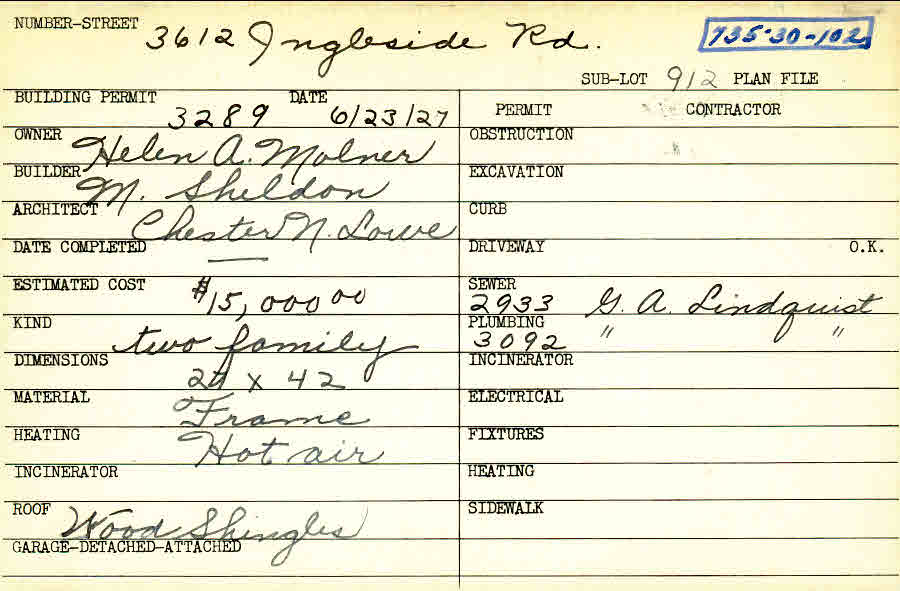 NUMBER-STREET 3612 Ingleside Rd. 735-30-102
SUB-LOT 912 PLAN FILE
BUILDING PERMIT 3289 DATE 6/23/27
PERMIT CONTRACTOR
OWNER Helen A. Molner
OBSTRUCTION
BUILDER M. Sheldon
EXCAVATION
ARCHITECT Chester N. Lowe
CURB
DATE COMPLETED —
DRIVEWAY O.K.
ESTIMATED COST $15,000 00
SEWER 2933 G. A. Lindquist
KIND two family
PLUMBING 3092 " "
DIMENSIONS x 42
INCINERATOR
MATERIAL Frame
ELECTRICAL
HEATING Hot air
FIXTURES
INCINERATOR
HEATING
ROOF Wood Shingles
SIDEWALK
GARAGE-DETACHED-ATTACHED